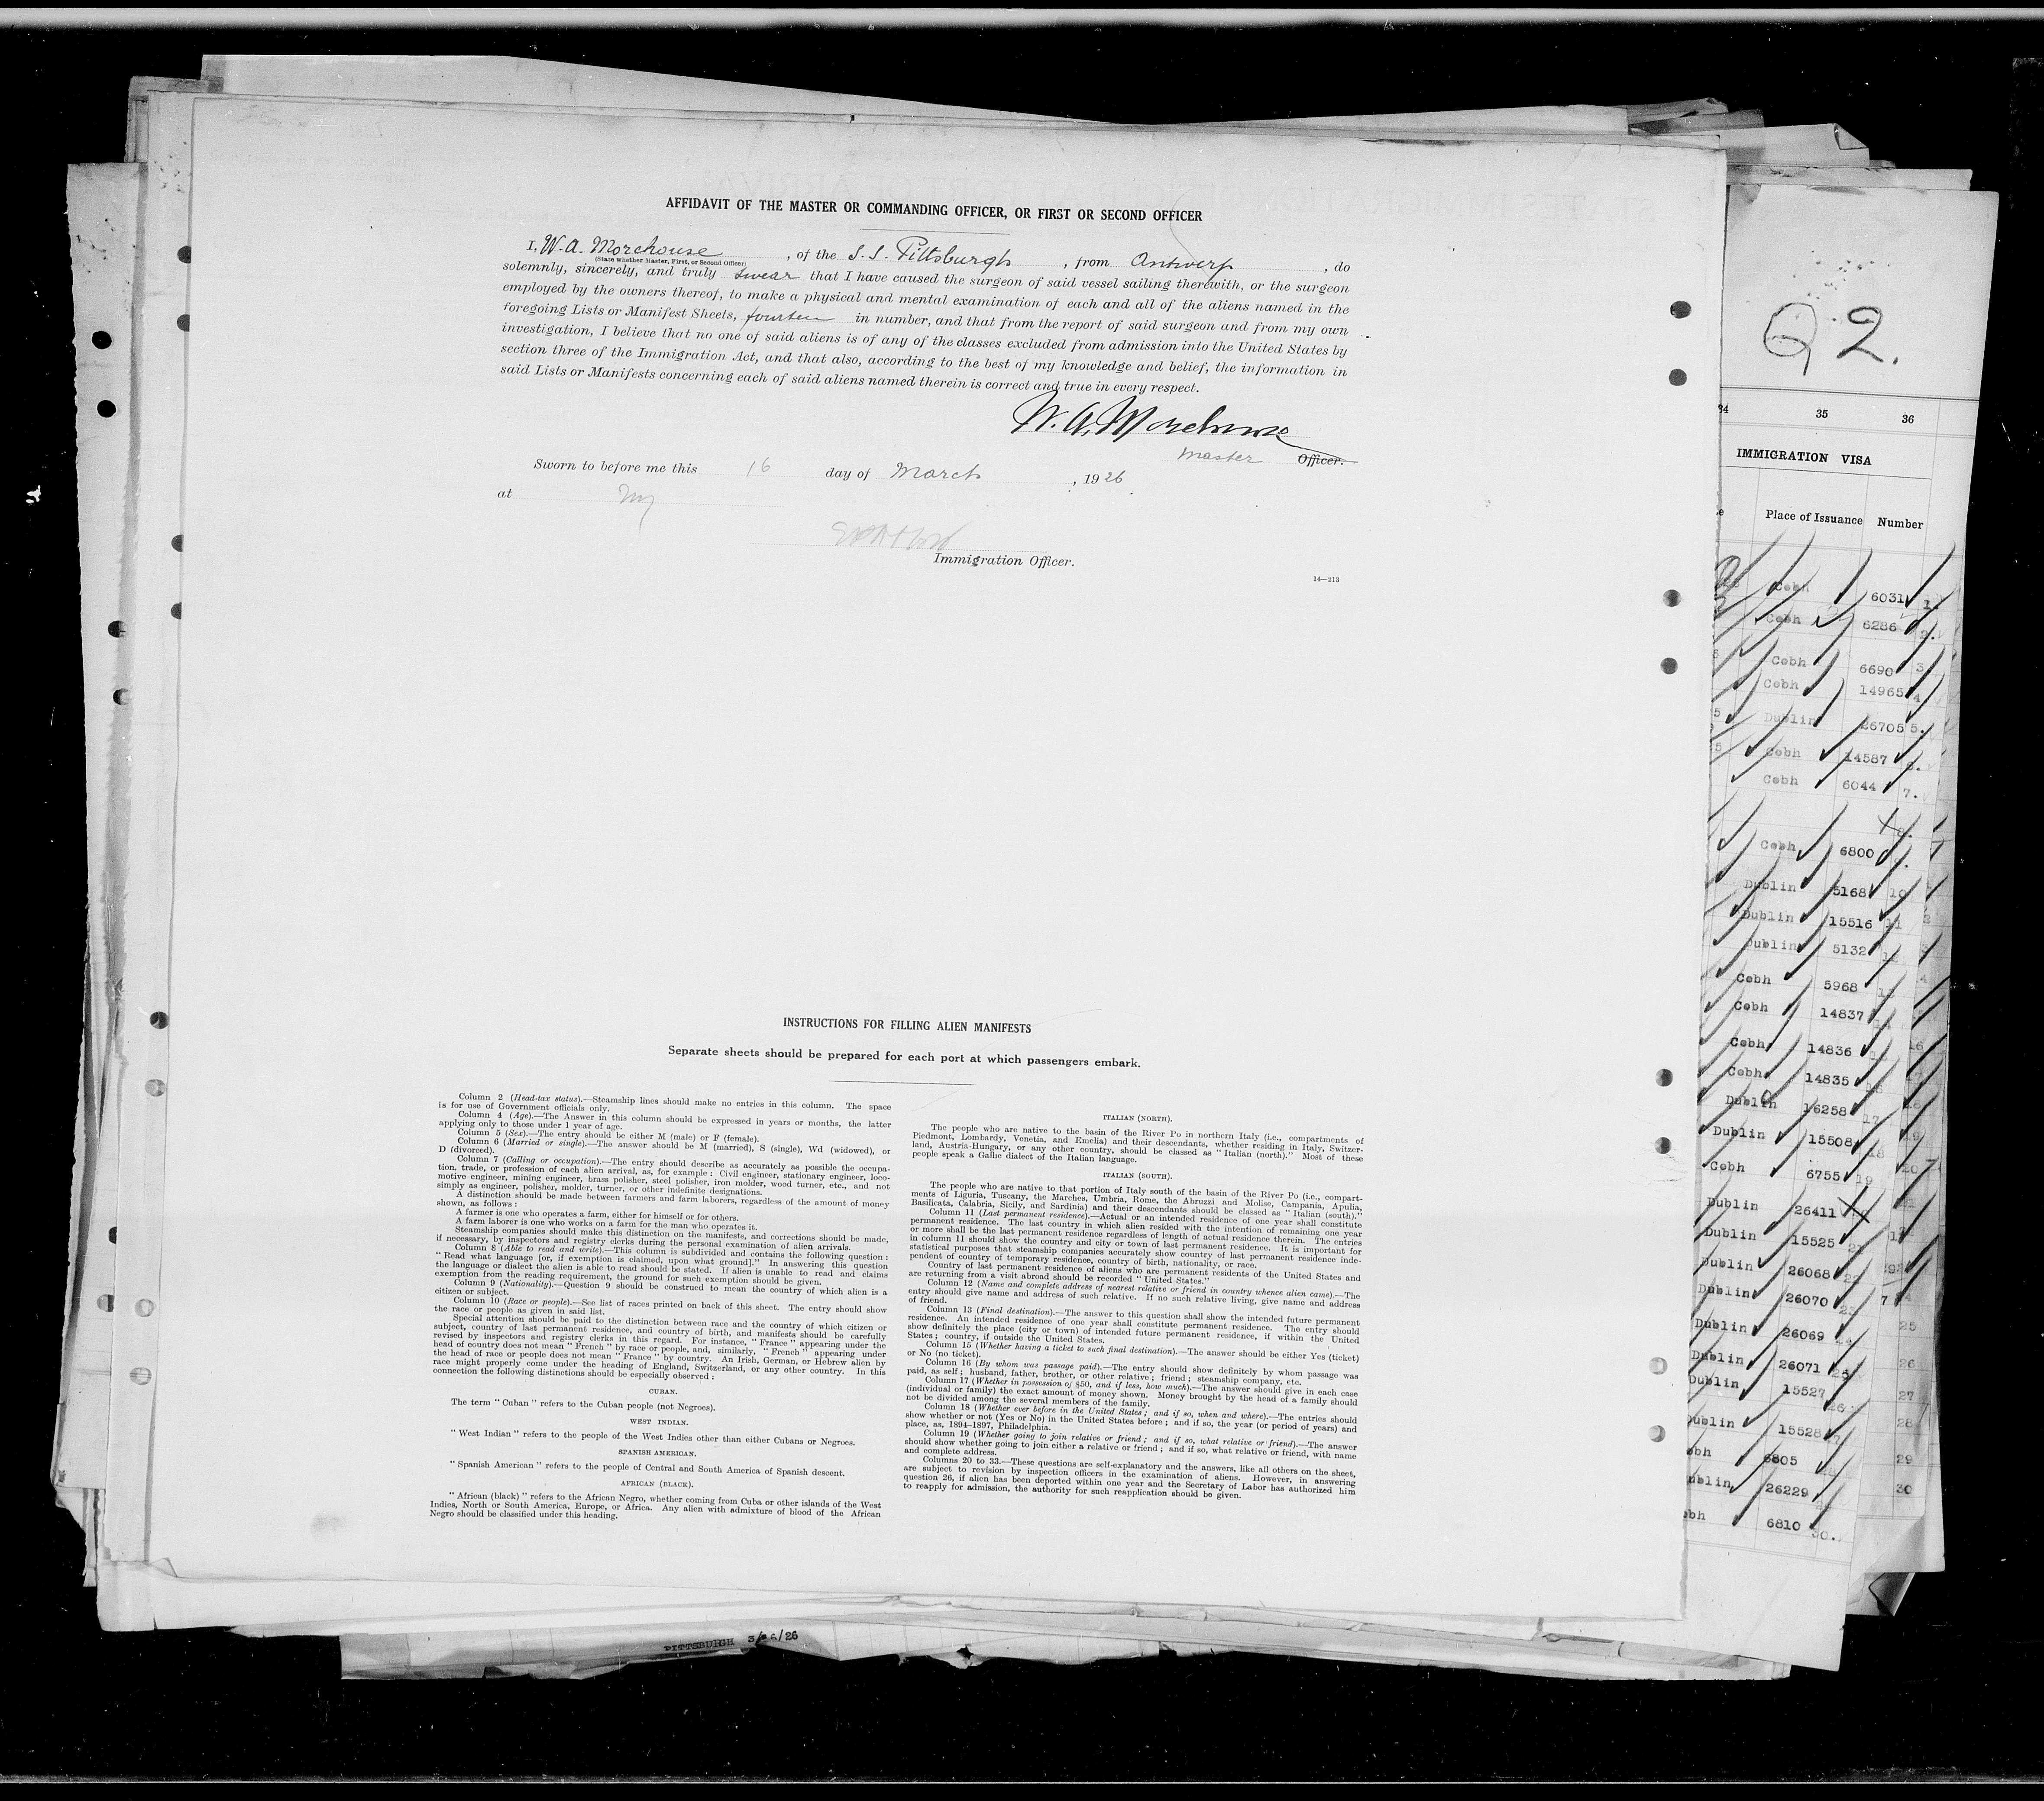 AFFIDAVIT OF THE MASTER OR COMMANDING OFFICER, OR FIRST OR SECOND OFFICER
I, W. A. Morehouse, of the S. S. Pittsburgh, from Antwerp, do
(State whether Master, First, or Second Officer)
solemnly, sincerely, and truly swear that I have caused the surgeon of said vessel sailing therewith, or the surgeon
employed by the owners thereof, to make a physical and mental examination of each and all of the aliens named in the
foregoing Lists or Manifest Sheets, fourteen in number, and that from the report of said surgeon and from my own
investigation, I believe that no one of said aliens is of any of the classes excluded from admission into the United States by
section three of the Immigration Act, and that also, according to the best of my knowledge and belief, the information in
said Lists or Manifests concerning each of said aliens named therein is correct and true in every respect.
W. A. Morehouse
Master Officer.
Sworn to before me this 16 day of March, 1926
at NY
Immigration Officer.
14—213
INSTRUCTIONS FOR FILLING ALIEN MANIFESTS
Separate sheets should be prepared for each port at which passengers embark.
Column 2 (Head-tax status).—Steamship lines should make no entries in this column. The space
is for use of Government officials only.
Column 4 (Age).—The Answer in this column should be expressed in years or months, the latter
applying only to those under 1 year of age.
Column 5 (Sex).—The entry should be either M (male) or F (female).
Column 6 (Married or single).—The answer should be M (married), S (single), Wd (widowed), or
D (divorced).
Column 7 (Calling or occupation).—The entry should describe as accurately as possible the occupa-
tion, trade, or profession of each alien arrival, as, for example: Civil engineer, stationary engineer, loco-
motive engineer, mining engineer, brass polisher, steel polisher, iron molder, wood turner, etc., and not
simply as engineer, polisher, molder, turner, or other indefinite designations.
A distinction should be made between farmers and farm laborers, regardless of the amount of money
shown, as follows:
A farmer is one who operates a farm, either for himself or for others.
A farm laborer is one who works on a farm for the man who operates it.
Steamship companies should make this distinction on the manifests, and corrections should be made,
if necessary, by inspectors and registry clerks during the personal examination of alien arrivals.
Column 8 (Able to read and write).—This column is subdivided and contains the following question:
"Read what language [or, if exemption is claimed, upon what ground]." In answering this question
the language or dialect the alien is able to read should be stated. If alien is unable to read and claims
exemption from the reading requirement, the ground for such exemption should be given.
Column 9 (Nationality).—Question 9 should be construed to mean the country of which alien is a
citizen or subject.
Column 10 (Race or people).—See list of races printed on back of this sheet. The entry should show
the race or people as given in said list.
Special attention should be paid to the distinction between race and the country of which citizen or
subject, country of last permanent residence, and country of birth, and manifests should be carefully
revised by inspectors and registry clerks in this regard. For instance, "France" appearing under the
head of country does not mean "French" by race or people, and, similarly, "French" appearing under
the head of race or people does not mean "France" by country. An Irish, German, or Hebrew alien by
race might properly come under the heading of England, Switzerland, or any other country. In this
connection the following distinctions should be especially observed:
CUBAN.
The term "Cuban" refers to the Cuban people (not Negroes).
WEST INDIAN.
"West Indian" refers to the people of the West Indies other than either Cubans or Negroes.
SPANISH AMERICAN.
"Spanish American" refers to the people of Central and South America of Spanish descent.
AFRICAN (BLACK).
"African (black)" refers to the African Negro, whether coming from Cuba or other islands of the West
Indies, North or South America, Europe, or Africa. Any alien with admixture of blood of the African
Negro should be classified under this heading.
ITALIAN (NORTH).
The people who are native to the basin of the River Po in northern Italy (i.e., compartments of
Piedmont, Lombardy, Venetia, and Emelia) and their descendants, whether residing in Italy, Switzer-
land, Austria-Hungary, or any other country, should be classed as "Italian (north)." Most of these
people speak a Gallic dialect of the Italian language.
ITALIAN (SOUTH).
The people who are native to that portion of Italy south of the basin of the River Po (i.e., compart-
ments of Liguria, Tuscany, the Marches, Umbria, Rome, the Abruzzi and Molise, Campania, Apulia,
Basilicata, Calabria, Sicily, and Sardinia) and their descendants should be classed as "Italian (south)."
Column 11 (Last permanent residence).—Actual or an intended residence of one year shall constitute
permanent residence. The last country in which alien resided with the intention of remaining one year
or more shall be the last permanent residence regardless of length of actual residence therein. The entries
in column 11 should show the country and city or town of last permanent residence. It is important for
statistical purposes that steamship companies accurately show country of last permanent residence inde-
pendent of country of temporary residence, country of birth, nationality, or race.
Country of last permanent residence of aliens who are permanent residents of the United States and
are returning from a visit abroad should be recorded "United States."
Column 12 (Name and complete address of nearest relative or friend in country whence alien came).—The
entry should give name and address of such relative. If no such relative living, give name and address
of friend.
Column 13 (Final destination).—The answer to this question shall show the intended future permanent
residence. An intended residence of one year shall constitute permanent residence. The entry should
show definitely the place (city or town) of intended future permanent residence, if within the United
States; country, if outside the United States.
Column 15 (Whether having a ticket to such final destination).—The answer should be either Yes (ticket)
or No (no ticket).
Column 16 (By whom was passage paid).—The entry should show definitely by whom passage was
paid, as self; husband, father, brother, or other relative; friend; steamship company, etc.
Column 17 (Whether in possession of $50, and if less, how much).—The answer should give in each case
(individual or family) the exact amount of money shown. Money brought by the head of a family should
not be divided among the several members of the family.
Column 18 (Whether ever before in the United States; and if so, when and where).—The entries should
show whether or not (Yes or No) in the United States before; and if so, the year (or period of years) and
place, as, 1894–1897, Philadelphia.
Column 19 (Whether going to join relative or friend; and if so, what relative or friend).—The answer
should show whether going to join either a relative or friend; and if so, what relative or friend, with name
and complete address.
Columns 20 to 33.—These questions are self-explanatory and the answers, like all others on the sheet,
are subject to revision by inspection officers in the examination of aliens. However, in answering
question 26, if alien has been deported within one year and the Secretary of Labor has authorized him
to reapply for admission, the authority for such reapplication should be given.
2.
34 35 36
IMMIGRATION VISA
Place of Issuance Number
Cobh 6031 1.
Cobh 6286 2.
Cobh 6690 3.
Cobh 14965 4.
Dublin 26705 5.
Cobh 14587 6.
Cobh 6044 7.
Cobh 6800 9.
Dublin 5168 10
Dublin 15516 11
Dublin 5132 12
Cobh 5968 13
Cobh 14837 14
Cobh 14836 15
Cobh 14835 16
Dublin 16258 17
Dublin 15508 18
Cobh 6755 19
Dublin 26411
Dublin 15525 21
Dublin 26068 22
Dublin 26070 23
Dublin 26069 24
Dublin 26071 25
Dublin 15527 26
Dublin 15528 27
6805
26229
6810 30.
25
26
27
28
29
30
PITTSBURGH